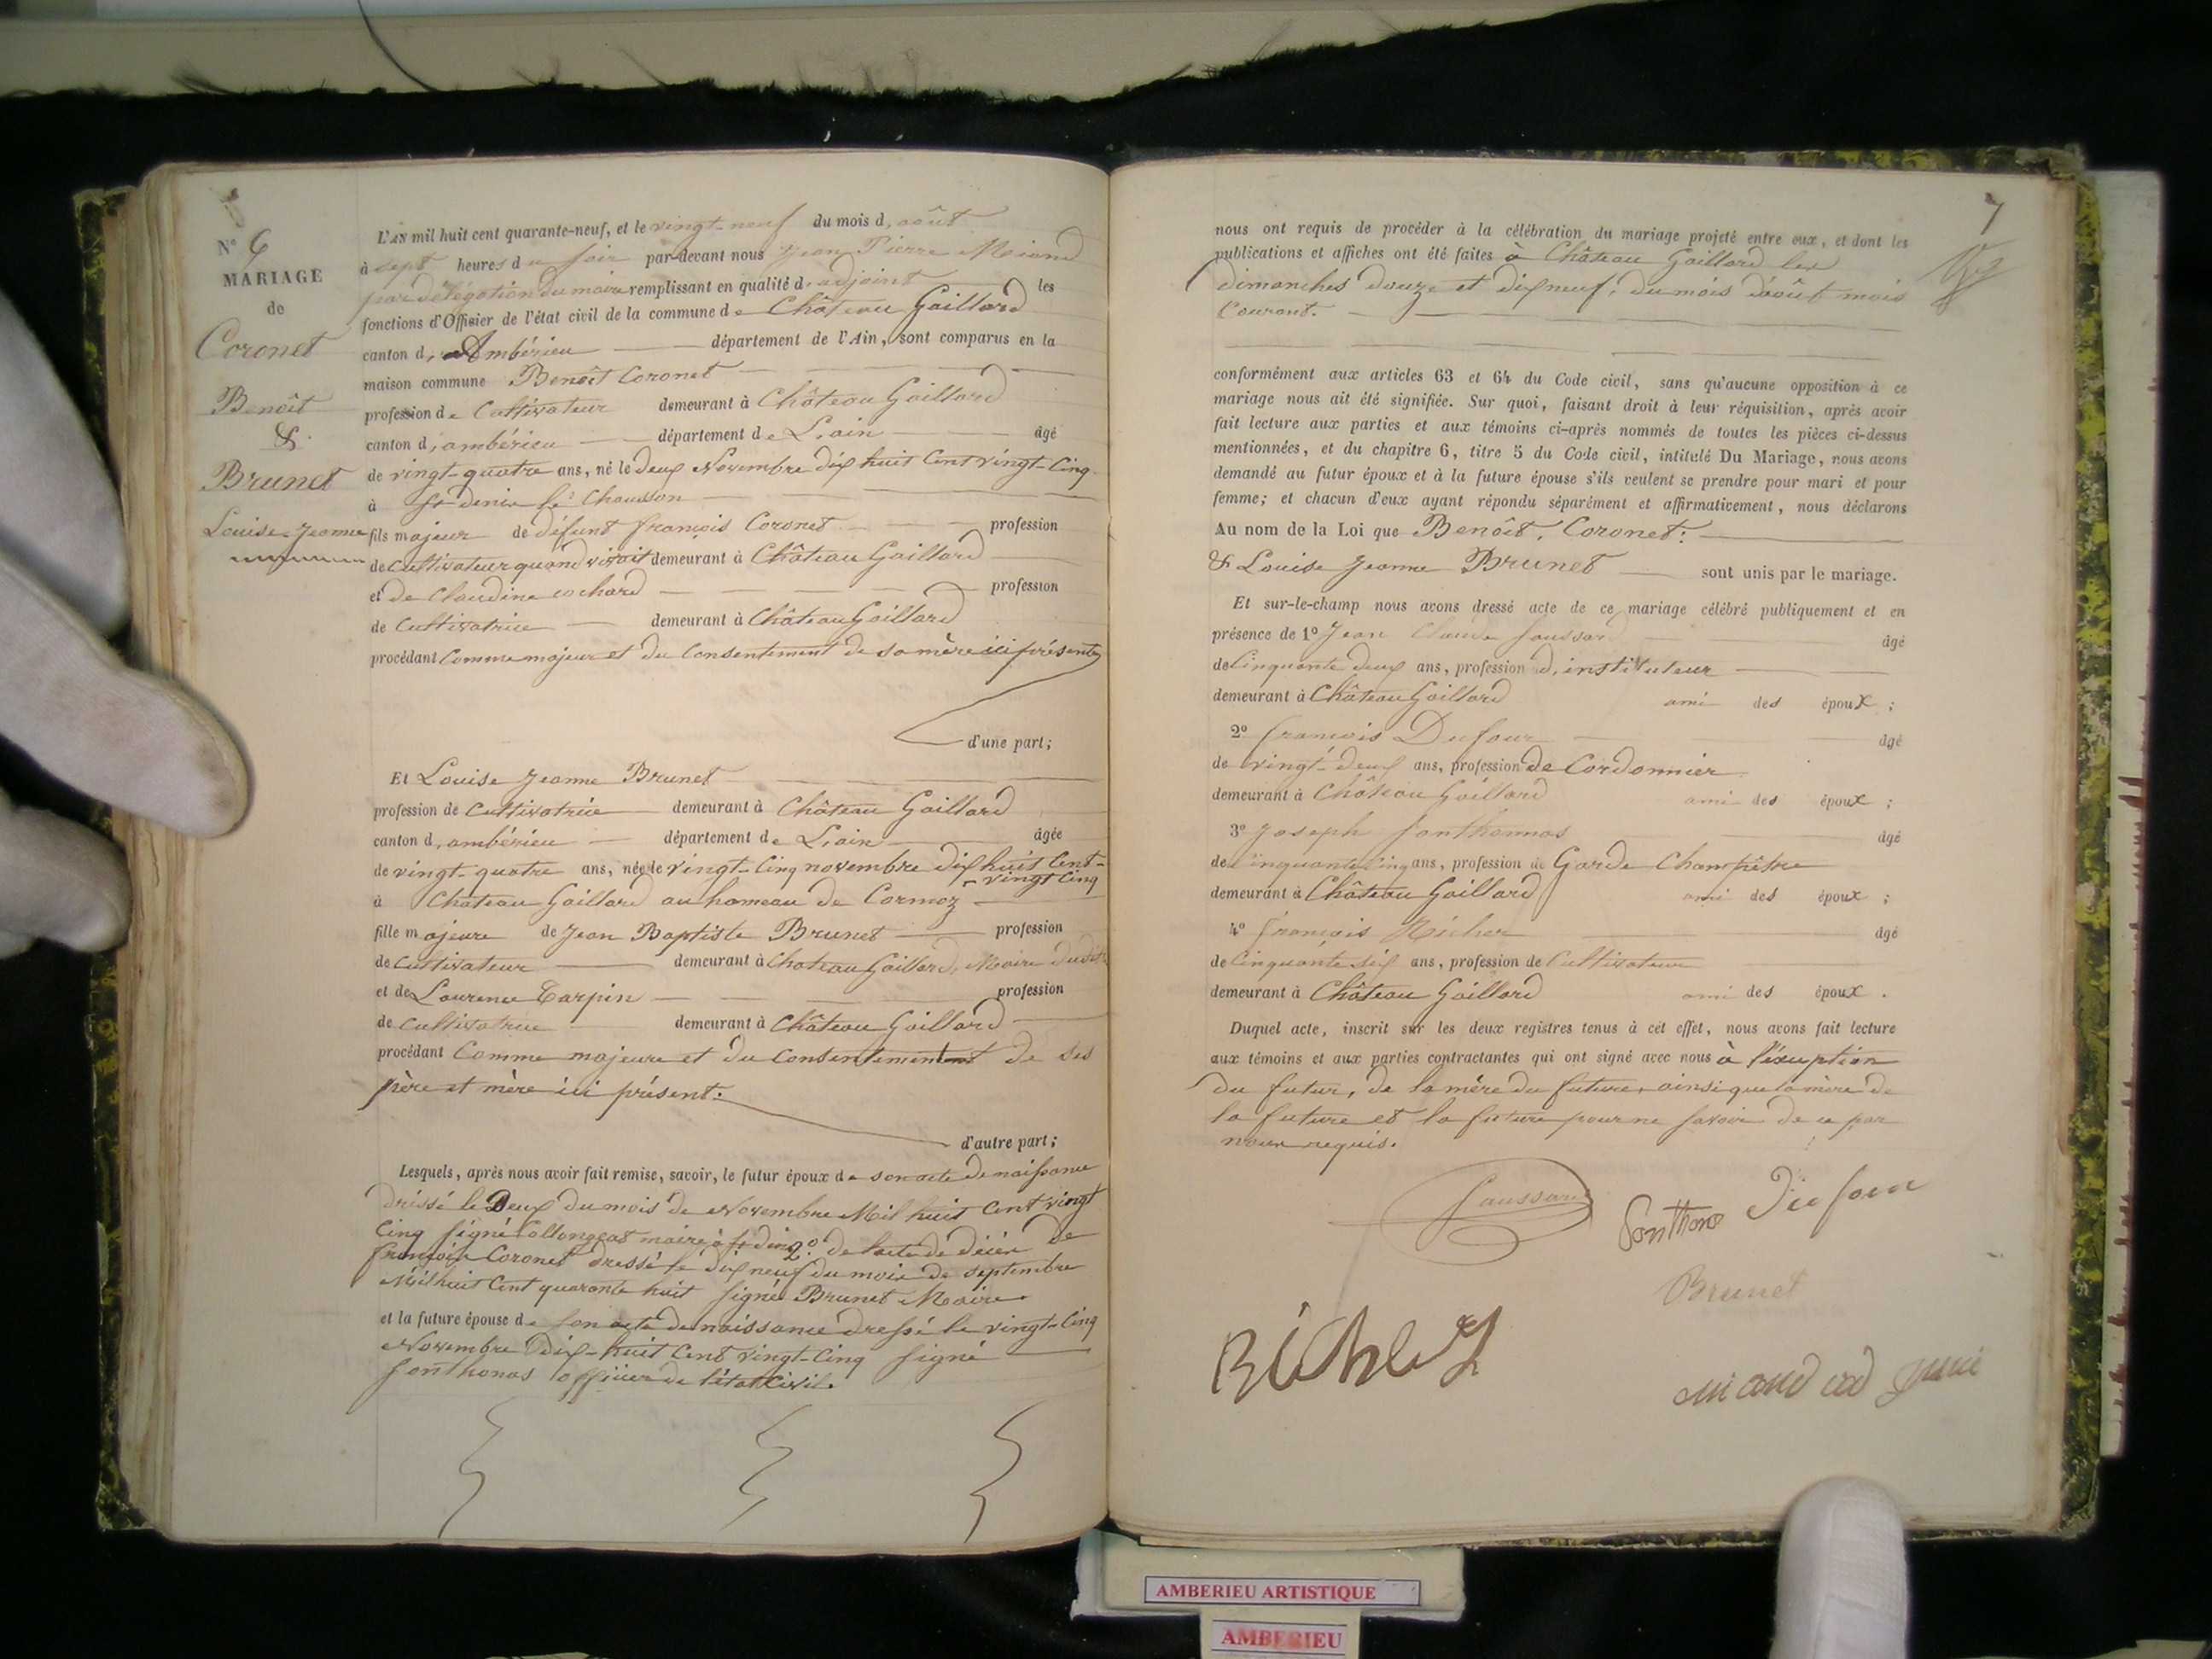 N° 6
MARIAGE
de
Coronet
Benoît
&
Brunet
Louise-Jeanne
L'AN mil huit cent quarante-neuf, et le vingt-neuf du mois d'août
à sept heures du soir par-devant nous Jean Pierre Miand
par délégation du maire remplissant en qualité d'adjoint les
fonctions d'Officier de l'état civil de la commune de Château Gaillard
canton d'Ambérieu département de l'Ain, sont comparus en la
maison commune Benoît Coronet
profession de Cultivateur demeurant à Château Gaillard
canton d'ambérieu département de L'ain âgé
de vingt-quatre ans, né le deux Novembre dix huit Cent vingt-Cinq
à St denis le Chausson
fils majeur de défunt françois Coronet profession
de Cultivateur quand vivait demeurant à Château Gaillard
et de Claudine cochard profession
de Cultivatrice demeurant à Château Gaillard
procédant Comme majeur et du Consentement de sa mère ici présente
d'une part;
Et Louise Jeanne Brunet
profession de Cultivatrice demeurant à Château Gaillard
canton d'ambérieu département de L'ain âgée
de vingt-quatre ans, née le vingt-Cinq novembre dix huit Cent-
vingt Cinq
à Château Gaillard au hameau de Cormoz
fille majeure de Jean Baptiste Brunet profession
de Cultivateur demeurant à Château Gaillard, Maire dudit
et de Laurence Carpin profession
de Cultivatrice demeurant à Château Gaillard
procédant Comme majeure et du Consentement de ses
père et mère ici présent.
d'autre part;
Lesquels, après nous avoir fait remise, savoir, le futur époux de son acte de naissance
dréssé le Deux du mois de Novembre Mil huit Cent vingt
Cinq signé Collongeat maire à St denis 2° de l'acte de décès de
françois Coronet dressé le dix neuf du mois de septembre
Mil huit Cent quarante huit signé Brunet Maire
et la future épouse de son acte de naissance dressé le vingt-Cinq
Novembre Dix-huit Cent vingt-Cinq signé
Janthonas officier de l'état Civil.
7
nous ont requis de procéder à la célébration du mariage projeté entre eux, et dont les
publications et affiches ont été faites à Château Gaillard les
dimanches douze et dix neuf, du mois d'août mois
Courant.
conformément aux articles 63 et 64 du Code civil, sans qu'aucune opposition à ce
mariage nous ait été signifiée. Sur quoi, faisant droit à leur réquisition, après avoir
fait lecture aux parties et aux témoins ci-après nommés de toutes les pièces ci-dessus
mentionnées, et du chapitre 6, titre 5 du Code civil, intitulé Du Mariage, nous avons
demandé au futur époux et à la future épouse s'ils veulent se prendre pour mari et pour
femme; et chacun d'eux ayant répondu séparément et affirmativement, nous déclarons
Au nom de la Loi que Benoît Coronet
& Louise Jeanne Brunet sont unis par le mariage.
Et sur-le-champ nous avons dressé acte de ce mariage célébré publiquement et en
présence de 1° Jean Claude Jaussard âgé
de Cinquante deux ans, profession d'instituteur
demeurant à Château Gaillard ami des époux;
2° françois Dufour âgé
de vingt-deux ans, profession de Cordonnier
demeurant à Château Gaillard ami des époux;
3° Joseph Janthonas âgé
de Cinquante Cinq ans, profession de Garde Champêtre
demeurant à Château Gaillard ami des époux;
4° françois Richer âgé
de Cinquante six ans, profession de Cultivateur
demeurant à Château Gaillard ami des époux.
Duquel acte, inscrit sur les deux registres tenus à cet effet, nous avons fait lecture
aux témoins et aux parties contractantes qui ont signé avec nous à l'éxeption
du futur, de la mère du future, ainsi que la mère de
la future et la future pour ne savoir de ce par
nous requis.
Jaussard
Janthonas
Dufour
Brunet
Richer
miand
AMBERIEU ARTISTIQUE
AMBERIEU